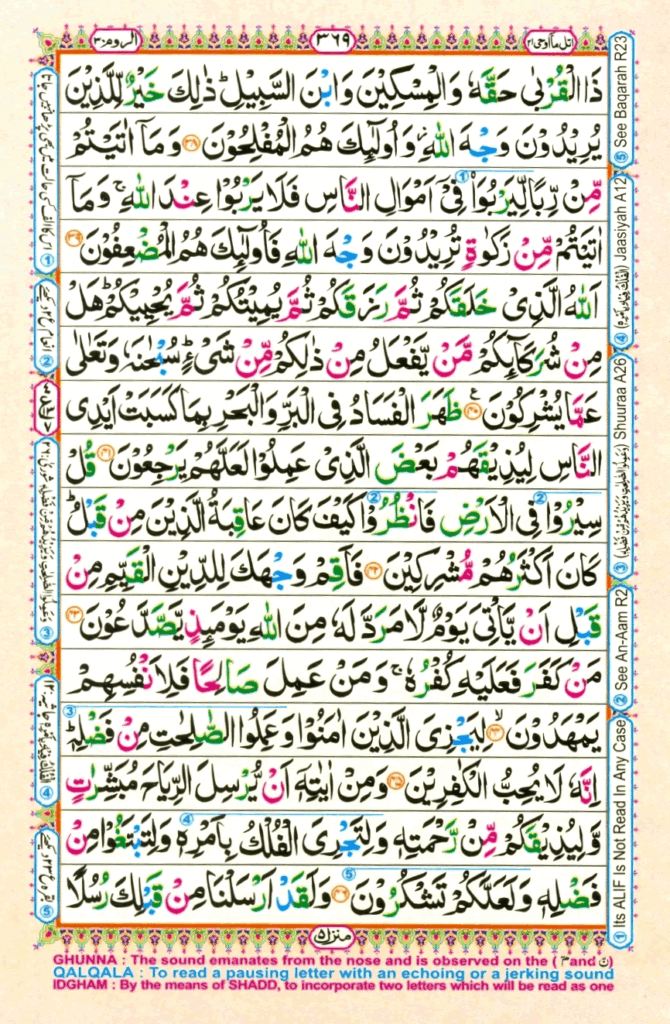 اتل مآ اوحی ۲۱
۳۶۹
الروم ۳۰
ذَا الْقُرْبٰى حَقَّهٗ وَالْمِسْكِيْنَ وَابْنَ السَّبِيْلِ ؕ ذٰلِكَ خَيْرٌ لِّلَّذِيْنَ
يُرِيْدُوْنَ وَجْهَ اللّٰهِ ۫ وَاُولٰٓئِكَ هُمُ الْمُفْلِحُوْنَ ۝۳۸ وَمَاۤ اٰتَيْتُمْ
مِّنْ رِّبًا لِّيَرْبُوَا۟ فِيْۤ اَمْوَالِ النَّاسِ فَلَا يَرْبُوْا عِنْدَ اللّٰهِ ۚ وَمَاۤ
اٰتَيْتُمْ مِّنْ زَكٰوةٍ تُرِيْدُوْنَ وَجْهَ اللّٰهِ فَاُولٰٓئِكَ هُمُ الْمُضْعِفُوْنَ ۝۳۹
اَللّٰهُ الَّذِيْ خَلَقَكُمْ ثُمَّ رَزَقَكُمْ ثُمَّ يُمِيْتُكُمْ ثُمَّ يُحْيِيْكُمْ ؕ هَلْ
مِنْ شُرَكَآئِكُمْ مَّنْ يَّفْعَلُ مِنْ ذٰلِكُمْ مِّنْ شَيْءٍ ؕ سُبْحٰنَهٗ وَتَعٰلٰى
عَمَّا يُشْرِكُوْنَ ۝۴۰ ع ظَهَرَ الْفَسَادُ فِي الْبَرِّ وَالْبَحْرِ بِمَا كَسَبَتْ اَيْدِي
النَّاسِ لِيُذِيْقَهُمْ بَعْضَ الَّذِيْ عَمِلُوْا لَعَلَّهُمْ يَرْجِعُوْنَ ۝۴۱ قُلْ
سِيْرُوْا فِي الْاَرْضِ فَانْظُرُوْا كَيْفَ كَانَ عَاقِبَةُ الَّذِيْنَ مِنْ قَبْلُ ؕ
كَانَ اَكْثَرُهُمْ مُّشْرِكِيْنَ ۝۴۲ فَاَقِمْ وَجْهَكَ لِلدِّيْنِ الْقَيِّمِ مِنْ
قَبْلِ اَنْ يَّاْتِيَ يَوْمٌ لَّا مَرَدَّ لَهٗ مِنَ اللّٰهِ يَوْمَئِذٍ يَّصَّدَّعُوْنَ ۝۴۳
مَنْ كَفَرَ فَعَلَيْهِ كُفْرُهٗ ۚ وَمَنْ عَمِلَ صَالِحًا فَلِاَنْفُسِهِمْ
يَمْهَدُوْنَ ۝۴۴ ۙ لِيَجْزِيَ الَّذِيْنَ اٰمَنُوْا وَعَمِلُوا الصّٰلِحٰتِ مِنْ فَضْلِهٖ ؕ
اِنَّهٗ لَا يُحِبُّ الْكٰفِرِيْنَ ۝۴۵ وَمِنْ اٰيٰتِهٖۤ اَنْ يُّرْسِلَ الرِّيَاحَ مُبَشِّرٰتٍ
وَّلِيُذِيْقَكُمْ مِّنْ رَّحْمَتِهٖ وَلِتَجْرِيَ الْفُلْكُ بِاَمْرِهٖ وَلِتَبْتَغُوْا مِنْ
فَضْلِهٖ وَلَعَلَّكُمْ تَشْكُرُوْنَ ۝۴۶ وَلَقَدْ اَرْسَلْنَا مِنْ قَبْلِكَ رُسُلًا
منزل ۵
① Its ALIF Is Not Read In Any Case
② See An-Aam R2
③ Shuuraa A26
④ Jaasiyah A12
⑤ See Baqarah R23
GHUNNA : The sound emanates from the nose and is observed on the ( م and ن )
QALQALA : To read a pausing letter with an echoing or a jerking sound
IDGHAM : By the means of SHADD, to incorporate two letters which will be read as one